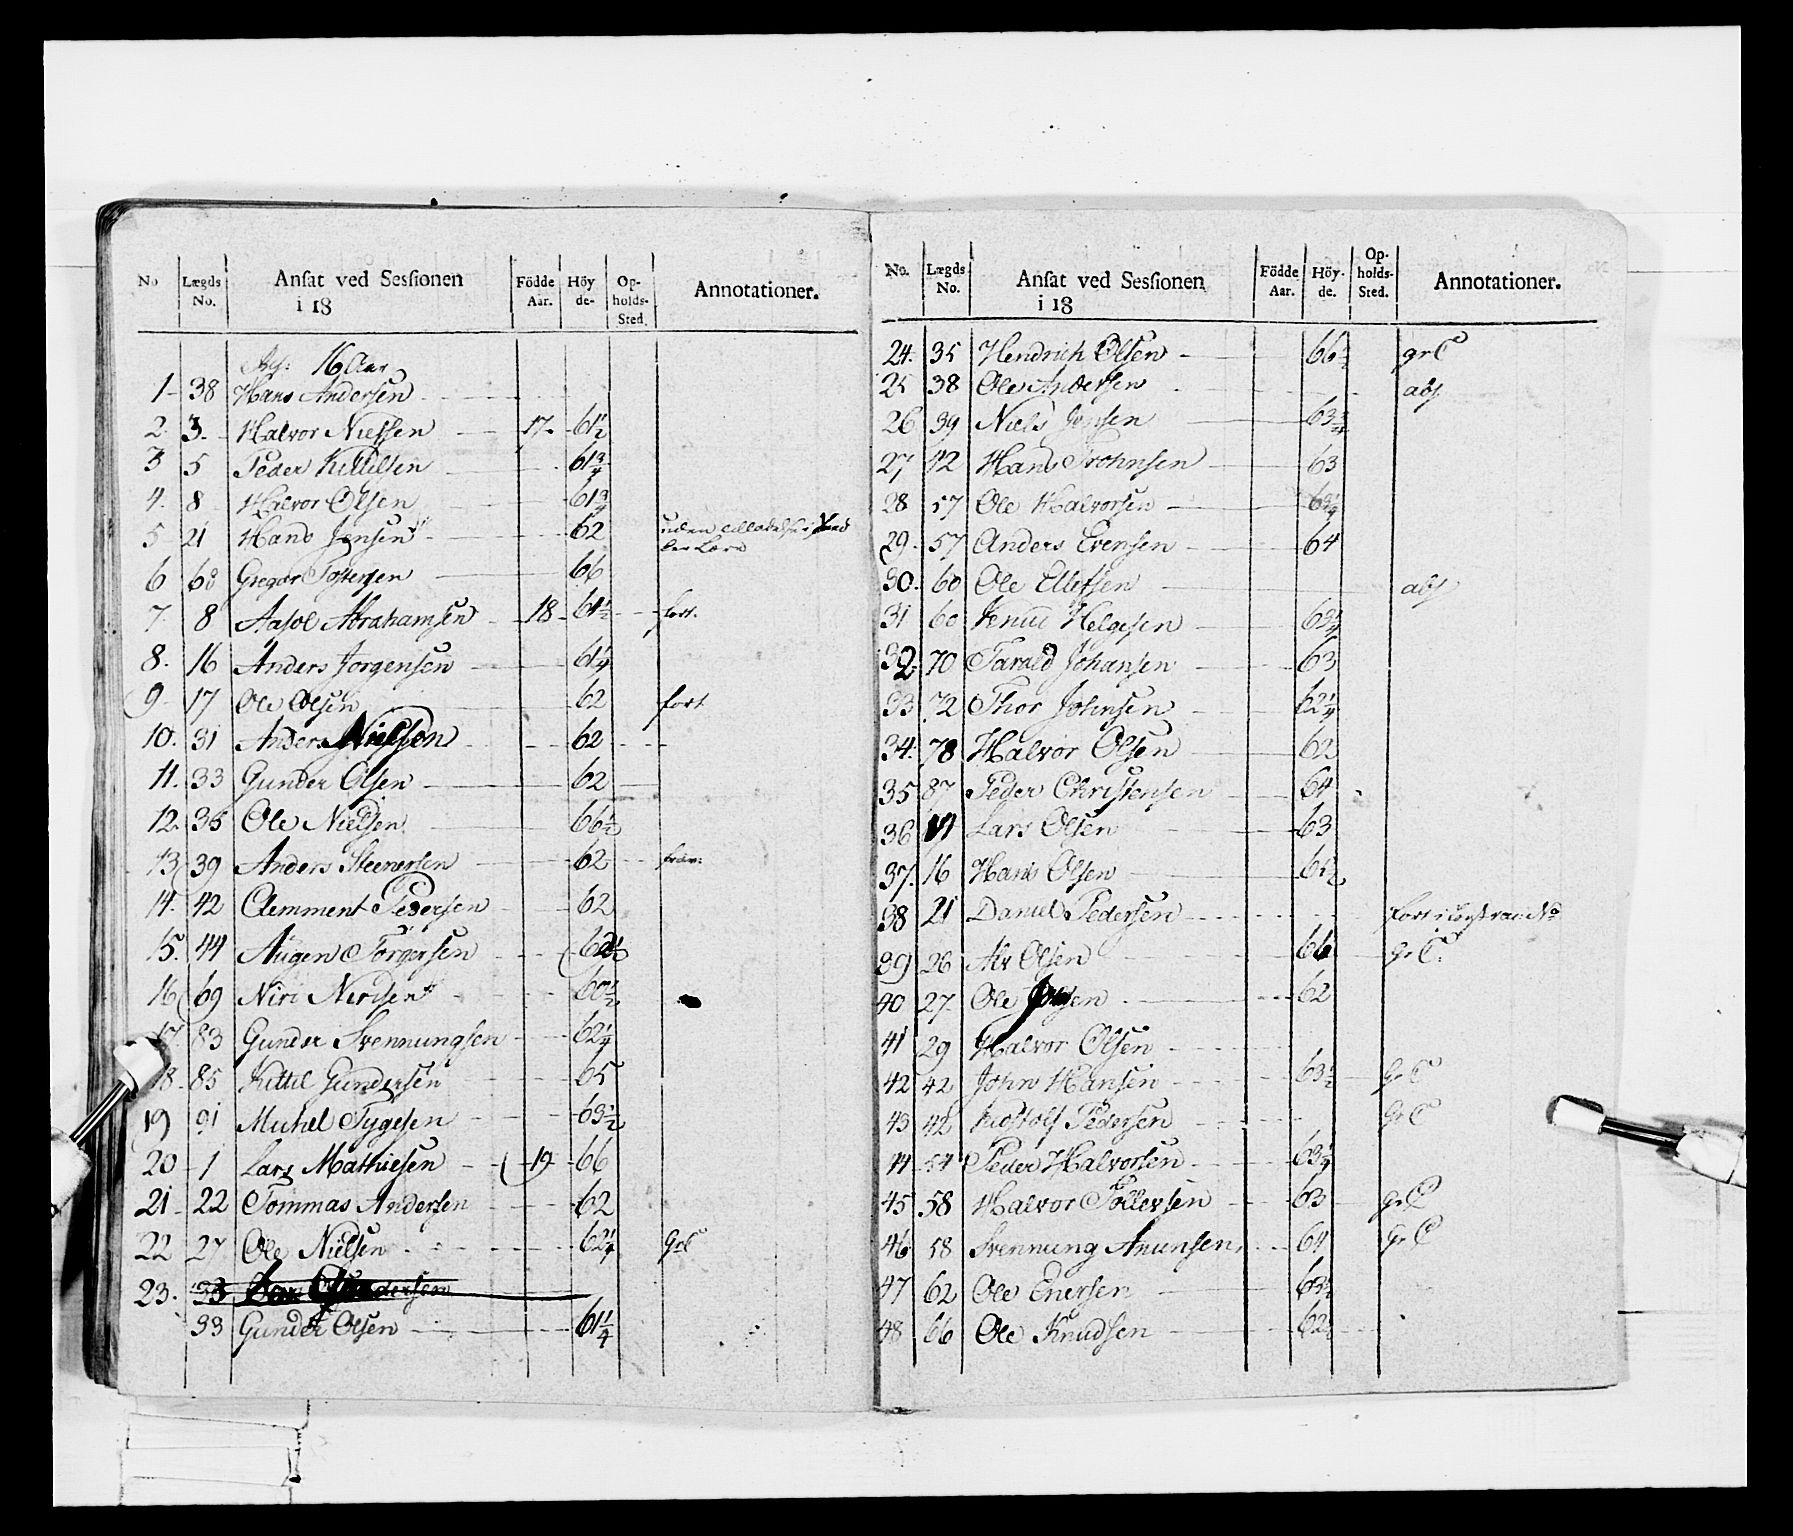 No Lægds No. Ansat ved Sessionen i 18 Födde Aar. Höyde- Opholds-Sted. Annotationer.
16 Aar
1 38 Hans Andersen
2. 3. Halvor Nielsen 17. 61½
3 5 Peder Kittilsen 61¾
4. 8 Halvor Olsen 61¾
5 21 Hans Jensen 62 uden
6 60 Gregor Tostersen 66
7. 8 Aasol Abrahamsen 18 61½ fort.
8. 16 Anders Jorgensen 61¼
9 17 Ole Olsen 62 fort
10. 31 Anders Nielsen 62
11. 33 Gunder Olsen 62
12. 35 Ole Nielsen 66½
13 39 Anders Steenersen 62
14. 42 Clemment Pedersen 62
15. 44 Augen Torgersen
16 69 Niri Nerisen 60½
17 83 Gunder Svennungsen 62¼
18 85 Kittil Gundersen 65
19 91 Michel Tygesen 63½
20 1 Lars Mathiesen 19 66
21 22 Tommas Andersen 62
22 27 Ole Nielsen 62¼ GrC
23. 33
33 Gunder Olsen 61¼
No. Lægds No. Ansat ved Sessionen i 18 Födde Aar. Höyde. Opholds-Sted. Annotationer.
24. 35 Hendrich Olsen 66½ grC
25 38 Ole Andersen abs
26 39 Niels 63¾
27 42 Hans Trohnsen 63
28 57 Ole Halvorsen
29. 57 Anders Evensen 64
30. 60 Ole Ellefsen abs
31 60 Knud Helgesen 63¾
32 70 Tarald Johansen 63
33 72 Thor Johnsen 62¼
34. 78 Halvor Olsen 62
35 87 Peder Christensen 64
36 Lars Olsen 63
37. 16 Hans Olsen
38 21 Daniel Pedersen fort
39 26 Alv Olsen 66 GrC.
40 27. Ole 62
41 29 Halvor Olsen
42 42 John Hansen 63½ GrC
43 42 Pedersen GrC
44 54 Peder Halvorsen 63¼
45 58 Halvor Tollevsen 63 GrC
46 58 Svennung Anunsen 64 GrC
47 62 Ole Enersen 63½
48 66 Ole Knudsen 62